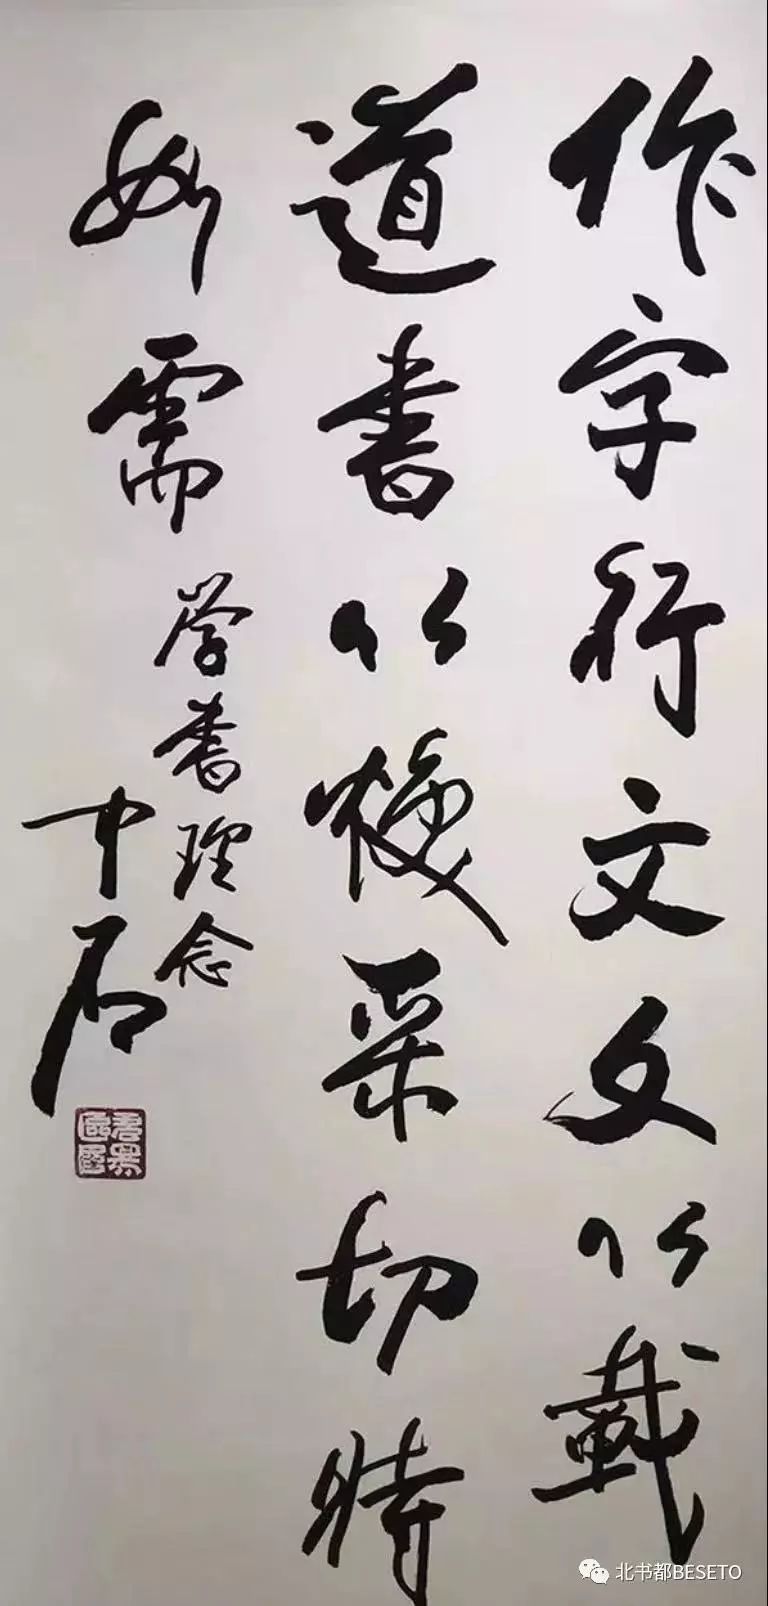 作字行文文以載
道書以煥采切時
如需
学書理念
中石
北书都BESETO